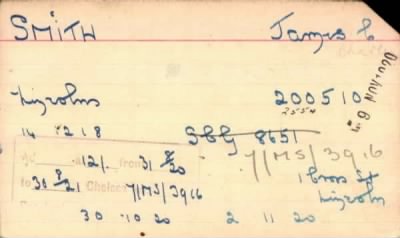 SMITH James C
Charles
Lincolns 200510
9 NOV 1920
14 2 18 SLG 8651
7/MS/3916
12/. from 31 8/20
to 30 8/21 Chelsea 7/MS/3916 1 Cross St
Lincoln
30 10 20 2 11 20